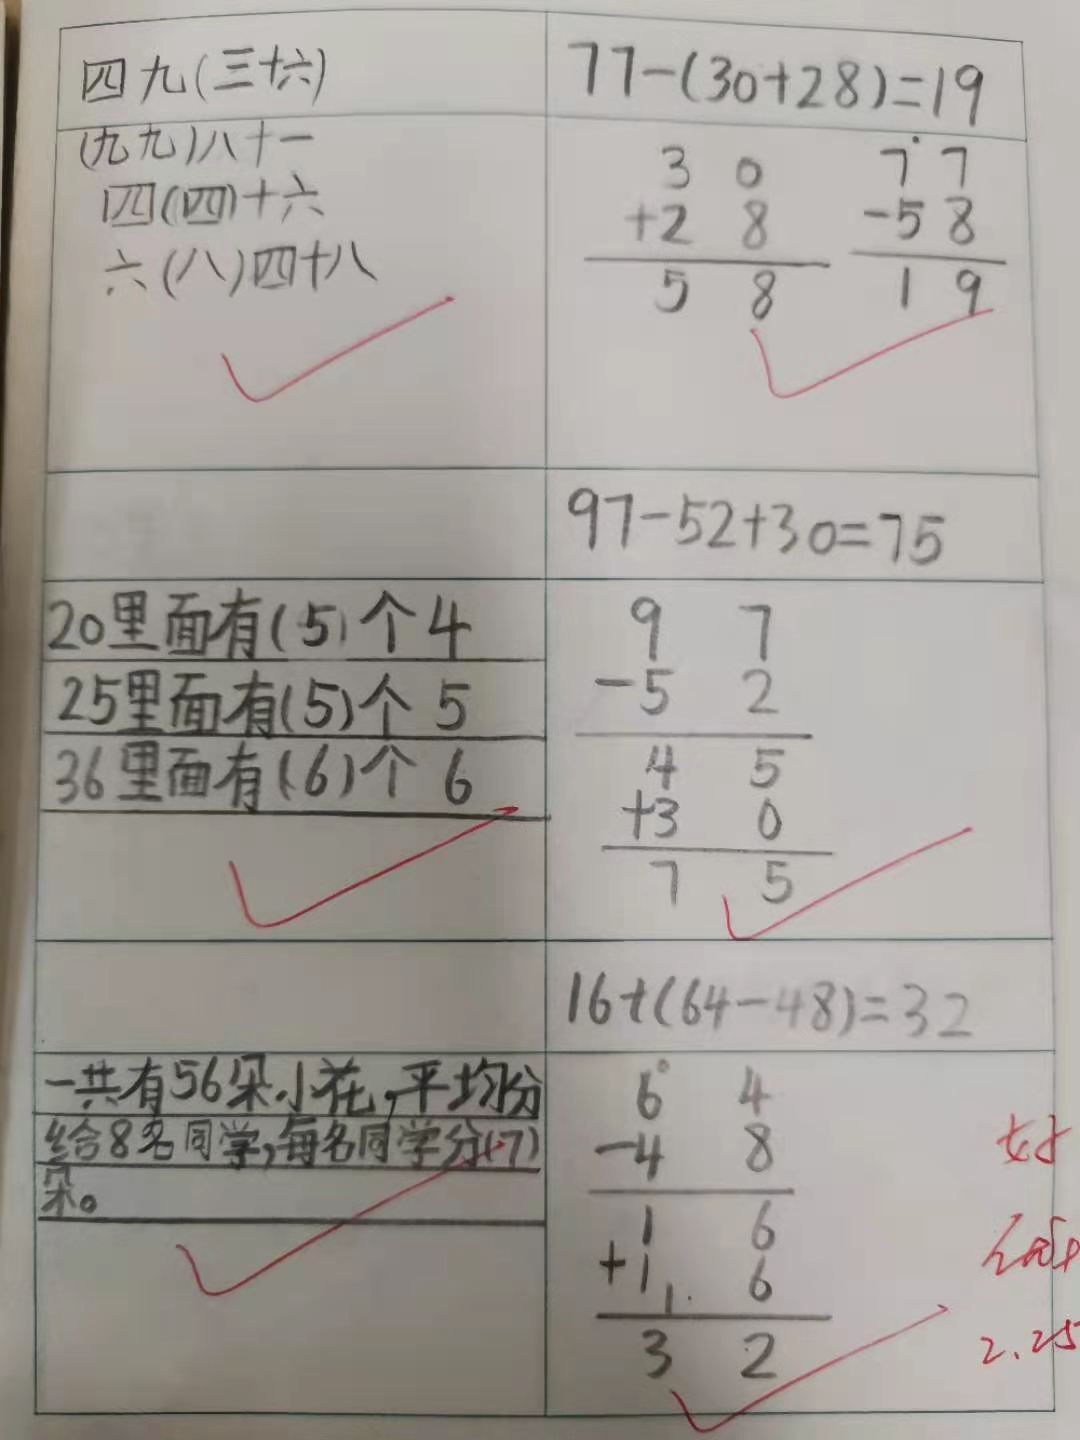 四九(三十六)
(九九)八十一
四(四)十六
六(八)四十八
77-(30+28)=19
3 0
+2 8
5 8
7 7
-5 8
1 9
97-52+30=75
20里面有(5)个4
25里面有(5)个5
36里面有(6)个6
9 7
-5 2
4 5
+3 0
7 5
16+(64-48)=32
一共有56朵小花,平均分
给8名同学,每名同学分(7)
朵。
6 4
-4 8
1 6
+1 6
1
3 2
好
2.25